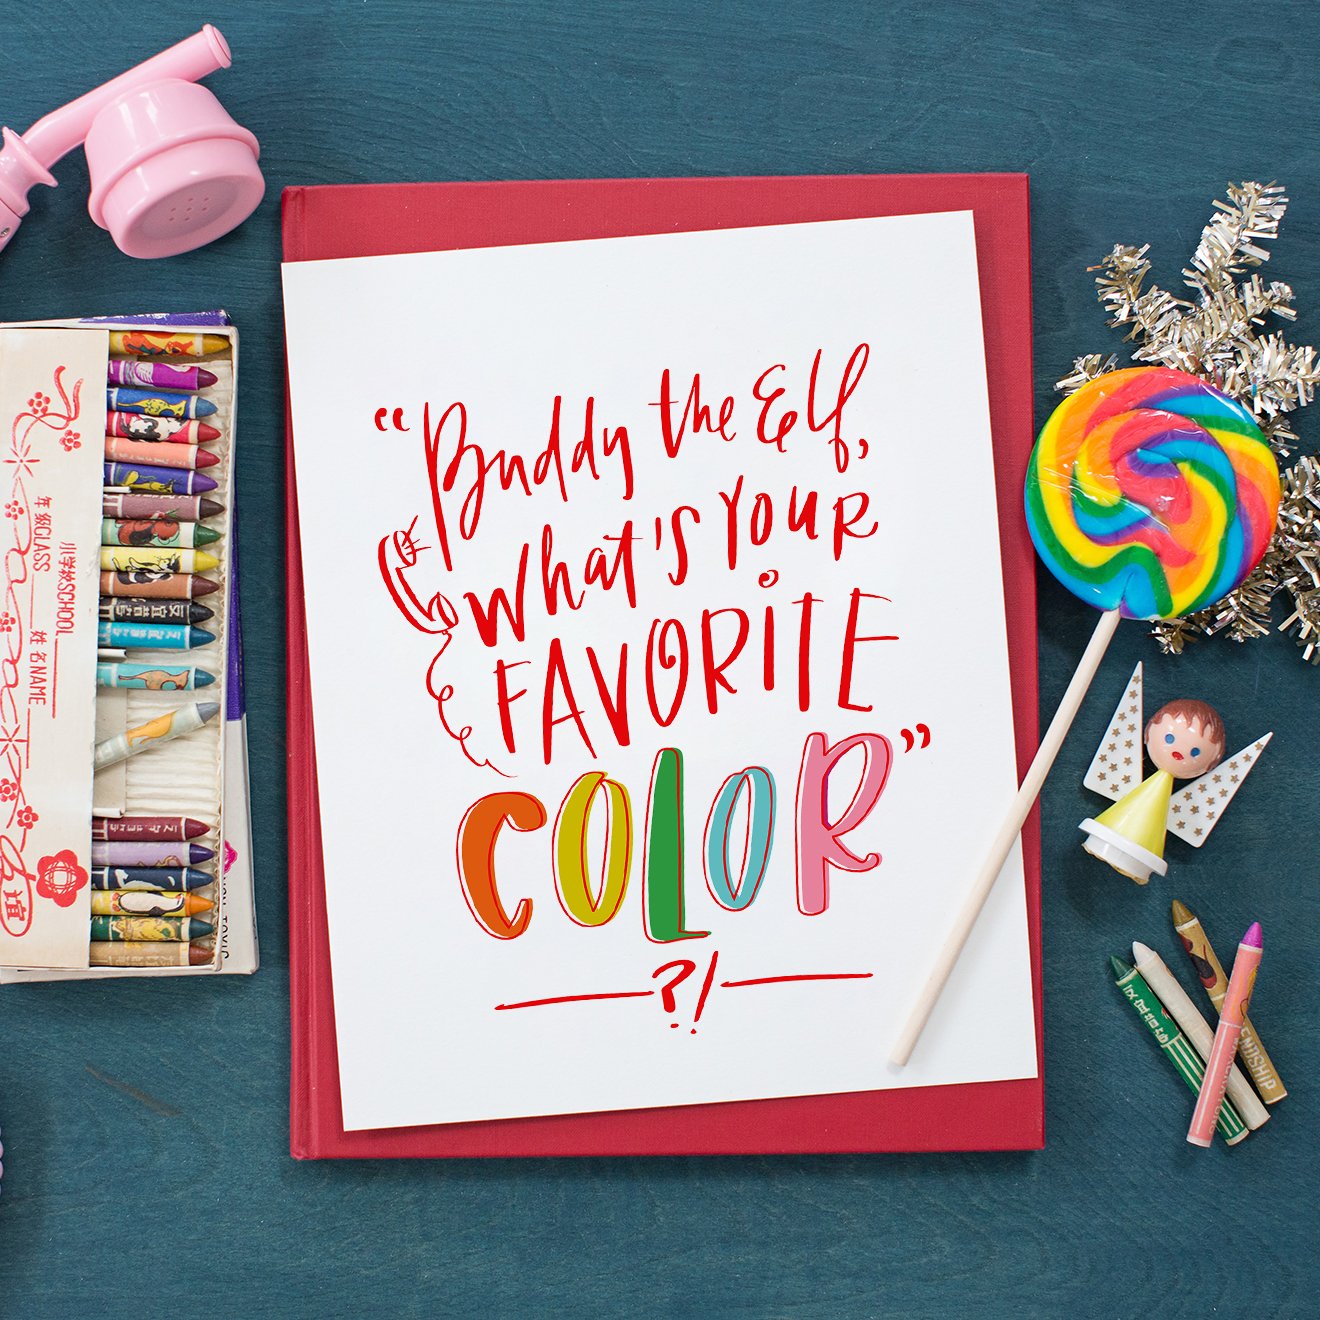 “Buddy the Elf,
What's YOUR
FAVORITE
COLOR”
?!
年級CLASS
小学校SCHOOL
姓名NAME